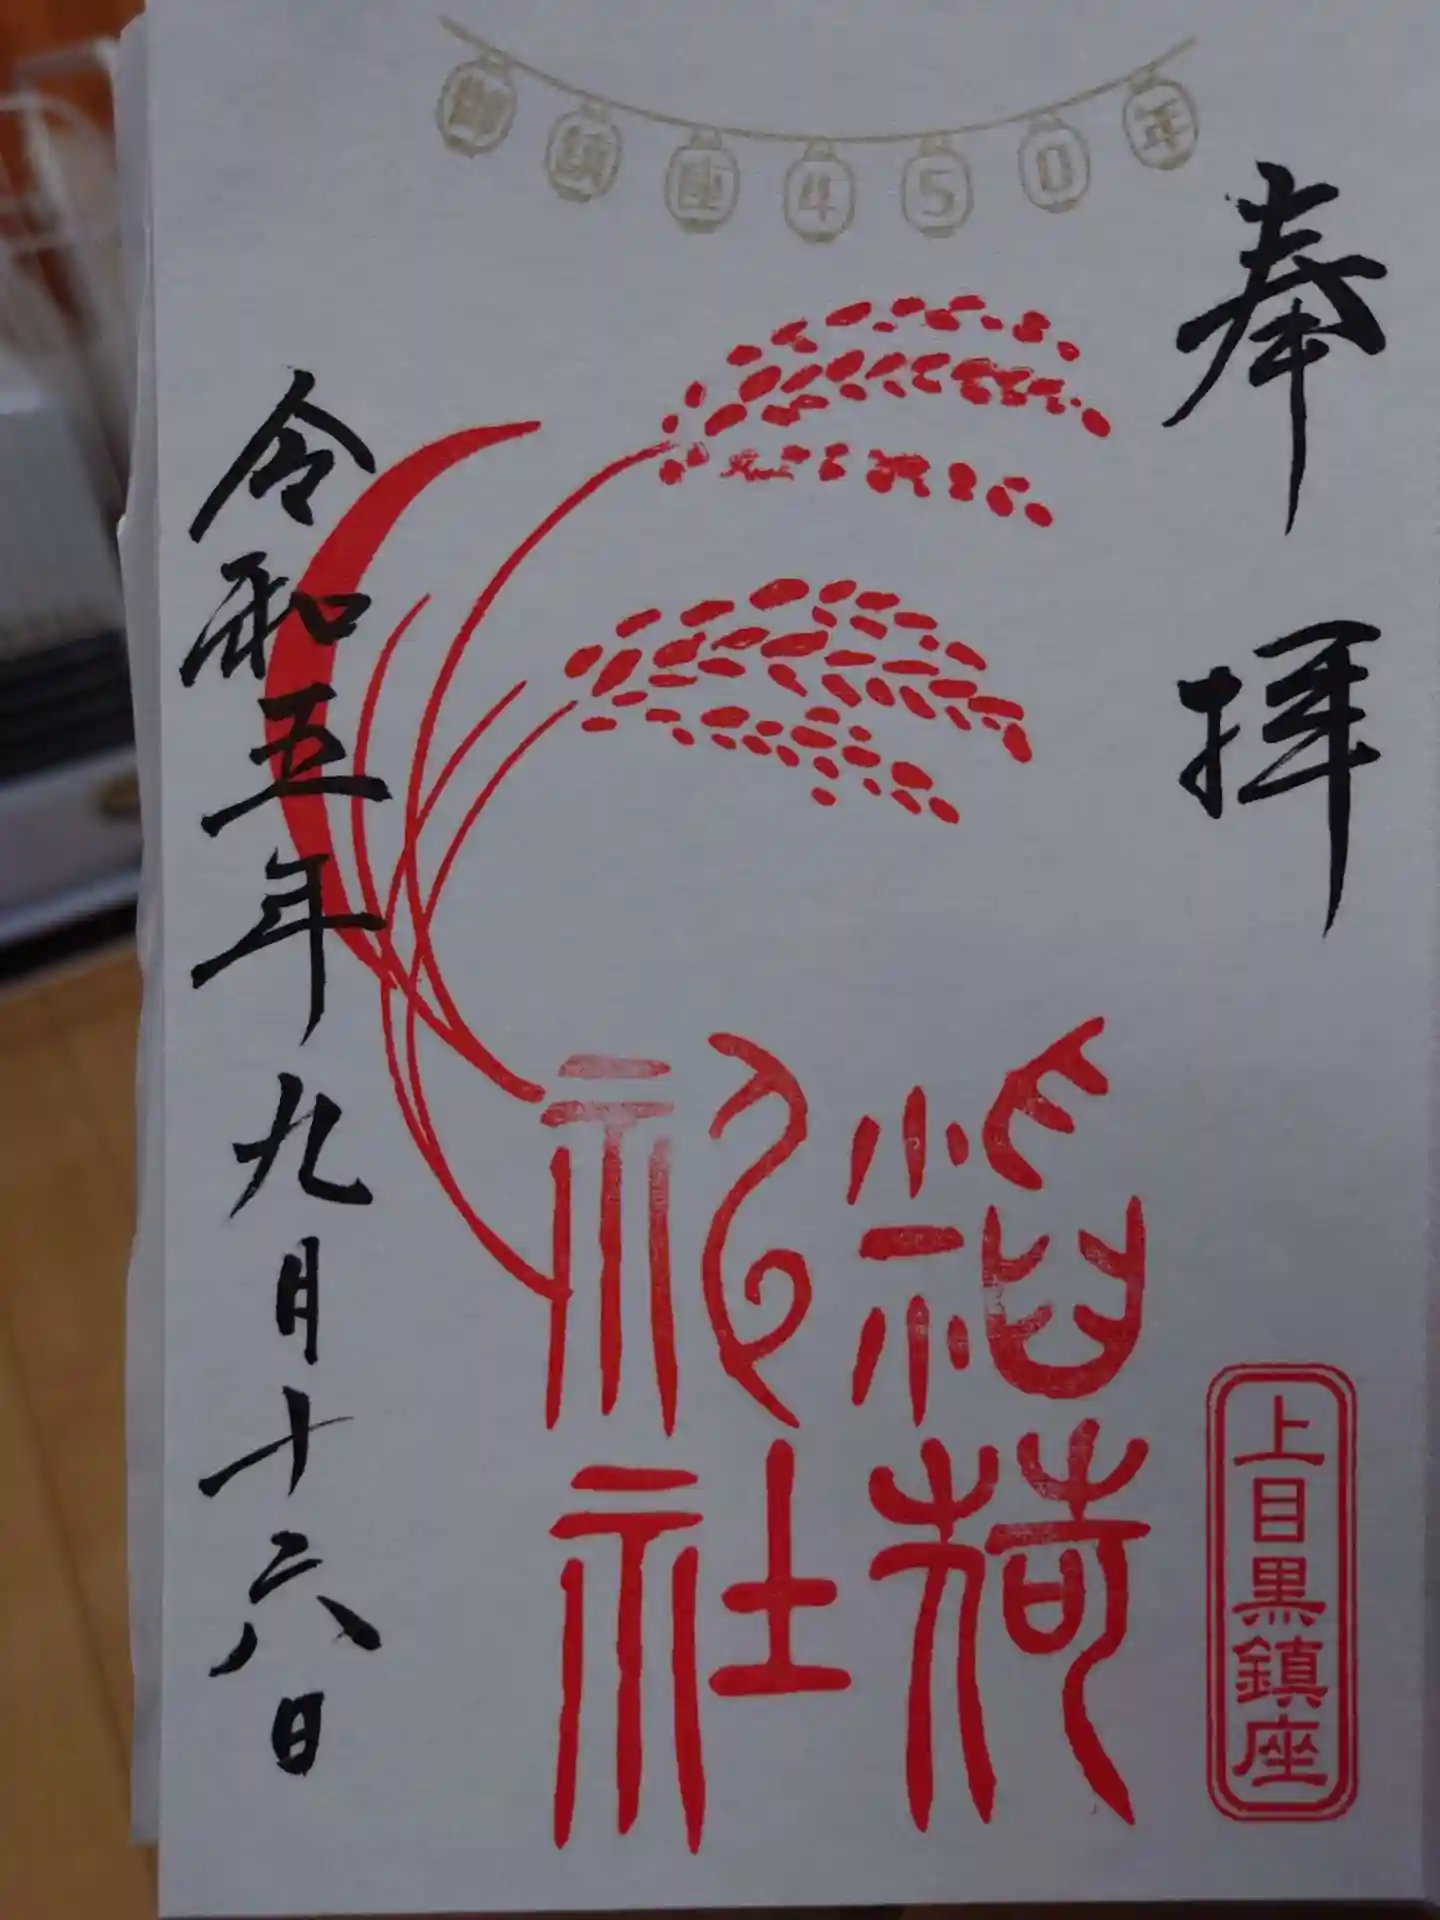 御鎮座450年
奉拝
上目黒鎮座
稲荷
神社
令和五年九月十六日